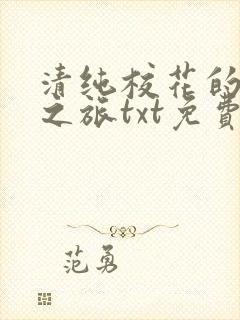 清纯校花的
之旅txt免費
范勇